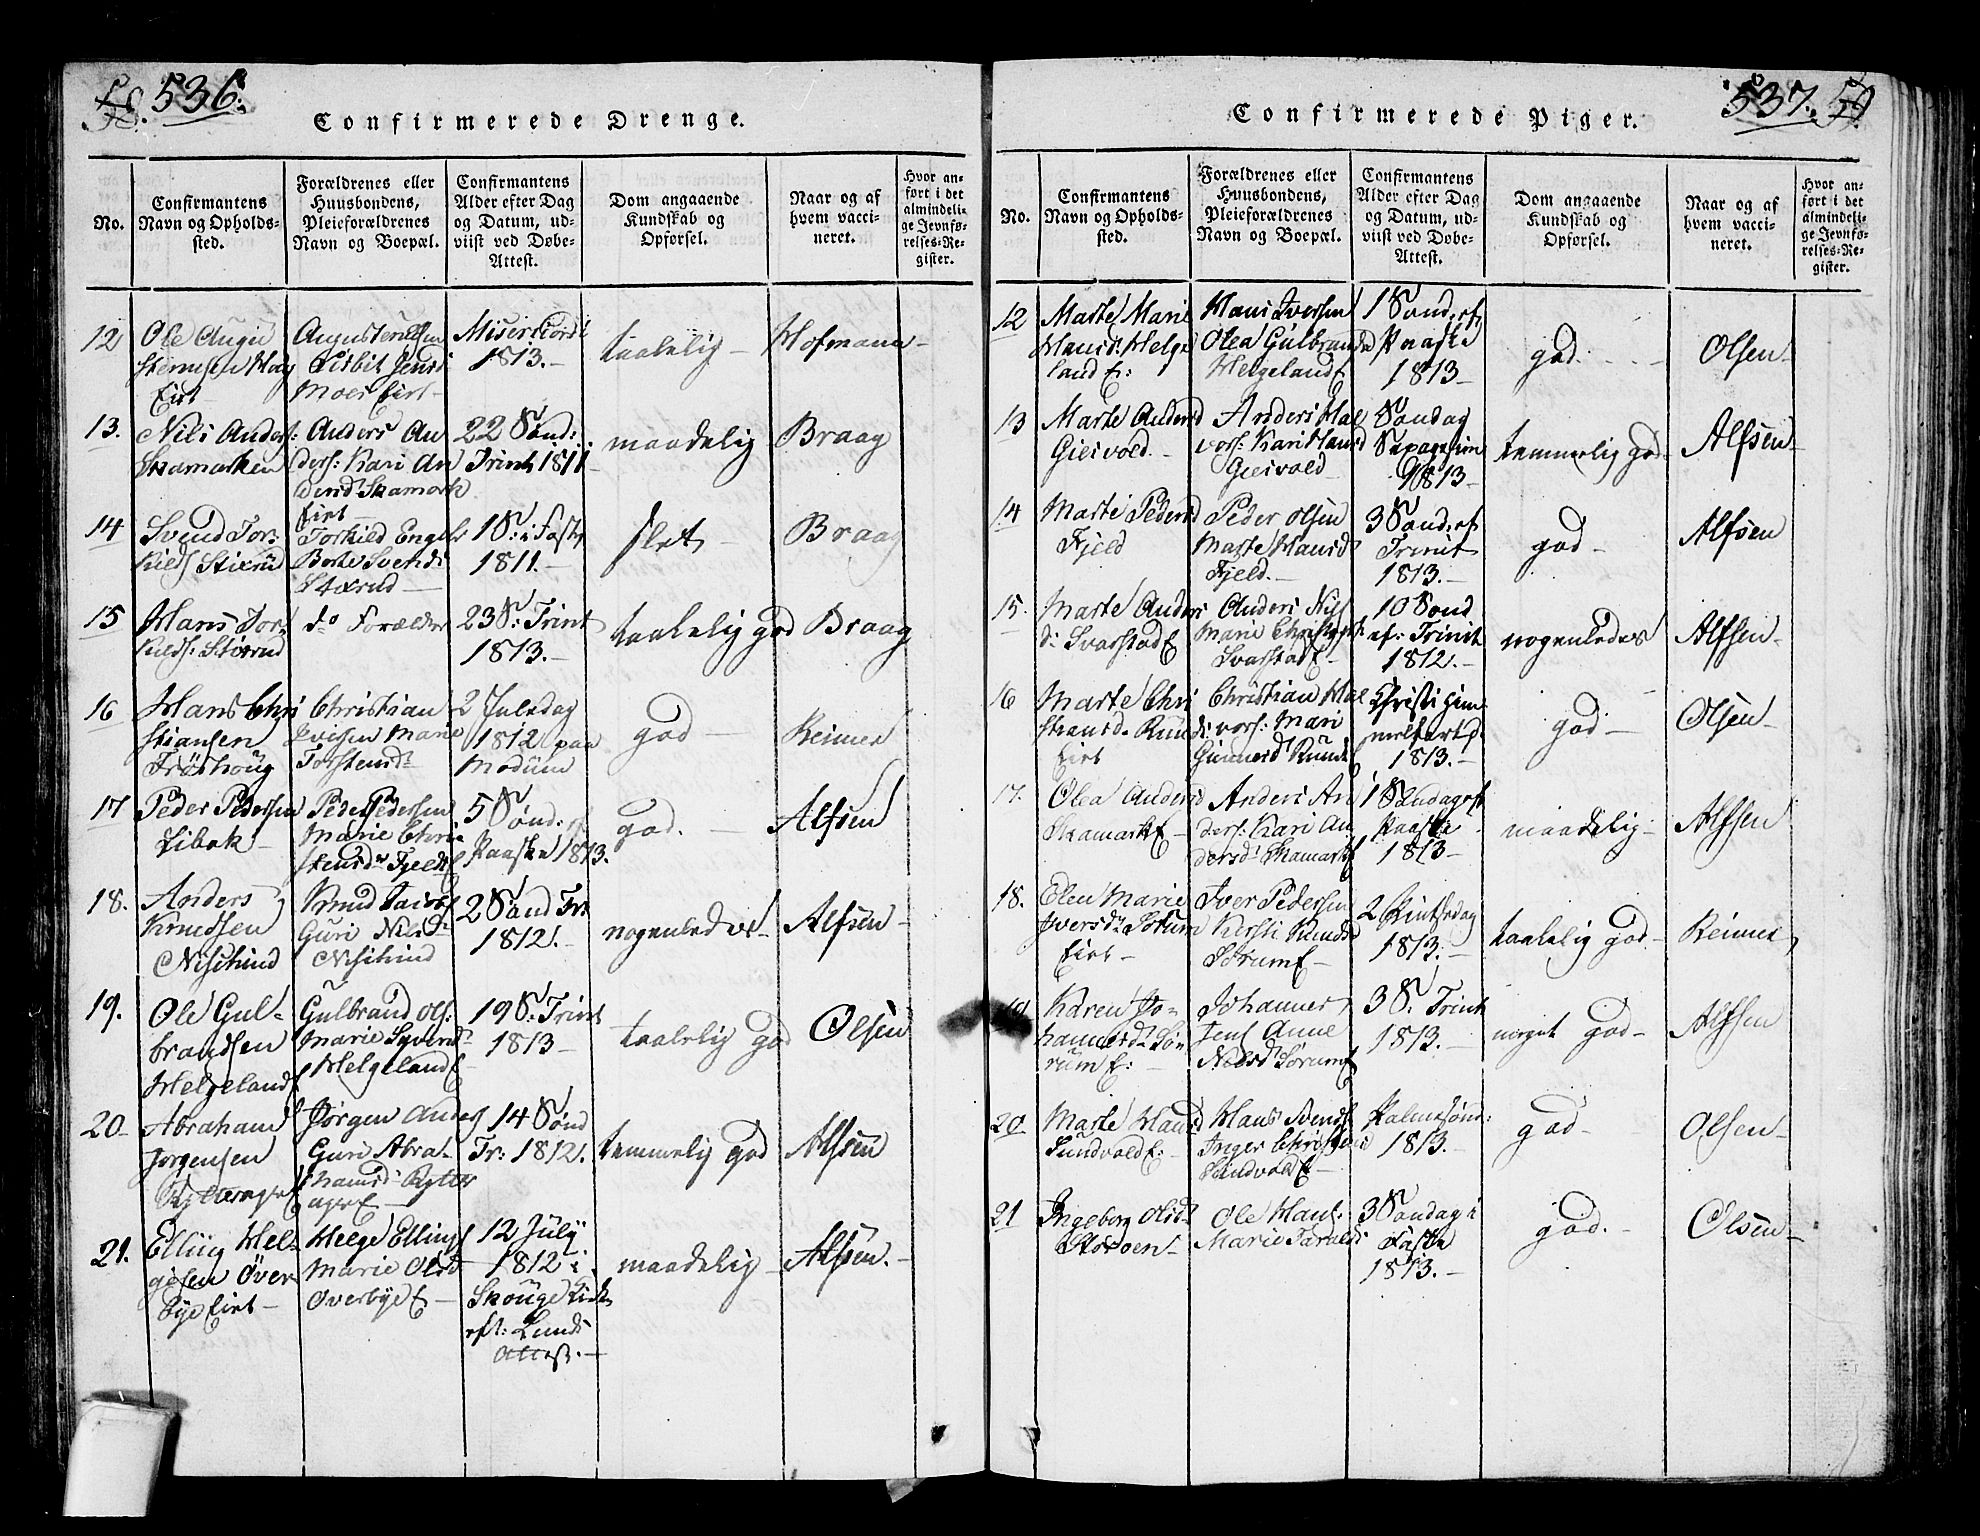 58. 536.
Confirmerede Drenge.
No.
Confirmantens
Navn og Opholds-
sted.
Forældrenes eller
Huusbondens,
Pleieforældrenes
Navn og Boepæl.
Confirmantens
Alder efter Dag
og Datum, ud-
viist ved Døbe-
Attest.
Dom angaaende
Kundskab og
Opførsel.
Naar og af
hvem vacci-
neret.
Hvor an-
ført i det
almindeli-
ge Jevnfø-
relses-Re-
gister.
12
Ole
Eirt
Moes Eirt
1813.
taalelig
Hofmann
13.
Nils Anders:
Skamarken
Anders An
ders: Kari An
dersd. Skamark
Eirt
22 Sønd:
Trinit 1811
maadelig
Braag
14
Svend Tor-
kilds Stixrud
Torkild Engebr
Berte Svends
Stixrud
1 S: i Faste
1811.
slet
Braag
15
Hans Tor-
kilds: Stixrud
do Forælder
23 S: Trinit
1813.
taalelig god
Braag
16
Hans Chri
stiansen
Frøshoug
Christian
Iversen Marie
Torstensd:
2 Juledag
1812 paa
Modum
god
Reimer
17
Peder Pedersen
Libak
Peder Pedersen
Marie Chri
stensd. Fjeld E
5 Sønd: ef
Paaske 1813.
god.
Alfsen
18.
Anders
Knudsen
Knud
Guri Nilsd
2 Sønd Tr:
1812.
nogenledes
Alfsen
19.
Ole Gul-
brandsen
Helgeland E
Gulbrand Ols:
Marie Syvers
Helgeland E
19 S: Trinit
1813
taalelig god
Olsen
20
Abraham
Jørgensen
Rytterager E
Jørgen Anders
Guri Abra-
hamsd Rytter
ager E
14 Sønd
Tr: 1812.
temmelig god
Alfsen
21.
Elling Hel-
gesen Over
bye Eirt
Helge Ellings
Marie Olsd
Overbye E
12 July
1812 i
Skouge Kirk
eft: Lunds
Attest.
maadelig
Alfsen.
537. 59
Confirmerede Piger.
No.
Confirmantens
Navn og Opholds-
sted.
Forældrenes eller
Huusbondens,
Pleieforældrenes
Navn og Boepæl.
Confirmantens
Alder efter Dag
og Datum, ud-
viist ved Døbe-
Attest.
Dom angaaende
Kundskab og
Opførsel.
Naar og af
hvem vacci-
neret.
Hvor an-
ført i det
almindeli-
ge Jevnfø-
relses-Re-
gister.
12
Marte Marie
Hansd: Helge
land E:
Hans Iversen
Olea Gulbrands
Helgeland E
1 Sønd: ef
Paaske
1813
god
Olsen
13
Marte Andersd
Gieivold
Anders Hal
vors: Kari Hansd
Gieivold
Søndag
1813
temmelig god
Alfsen
14
Marte Pedersd
Fjeld
Peder Olsen
Marte Hansd
Fjeld.
3 Sønd: ef
Trinit
1813.
god
Alfsen
15.
Marte Anders
d: Svarstad E
Anders Nils
Marie
Svarstad E
10 Sønd
ef: Trinit
1812.
nogenledes
Alfsen
16
Marte Chri
stiansd. Rund
Eirt
Christian Hal
vors: Mari
Gunnersd Rund E
Christi Him
melfartsd.
1813.
god
Olsen
17.
Olea Andersd
Skamark E
Anders An
ders: Kari An
dersd Skamark E
1 Søndag eft
Paaske
1813
maadelig
Alfsen
18.
Elen Marie
Iversd. Sørum
Eirt
Iver Pedersen
Kersti Knudsd
Sørum E
2 Pintsedag
1813.
taalelig god
Reimer
19
Karen Jo-
hannesd. Sø-
rum E:
Johannes
Jens Anne
Nilsd Sørum E
3 S. Trinit
1813.
meget god
Alfsen
20
Marte Hansd
Sundvold E:
Hans Svends
Inger Christensd
Sundvold E
Palmesønd:
1813.
god
Olsen
21
Ingeborg Olsd
Storøen
Ole Hans:
Marie Taralds
3 Søndag i
Faste
1813.
god.
Olsen